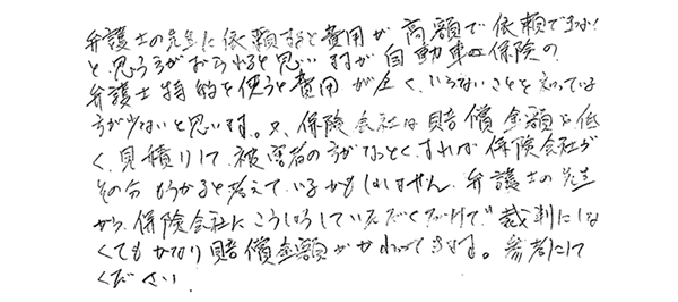 弁護士の先生に依頼すると費用が高額で依頼できない
と思う方がおられると思いますが自動車の保険の
弁護士特約を使うと費用が全く、いらないことを知っている
方が少ないと思います。又、保険会社は賠償金額を低
く、見積りして、被害者の方がなっとくすれば保険会社が
その分もうかると考えているかもしれません。弁護士の先生
から、保険会社にこうしょうしていただくだけで、裁判にしな
くてもかなり賠償金額がかわってきます。参考にして
ください。